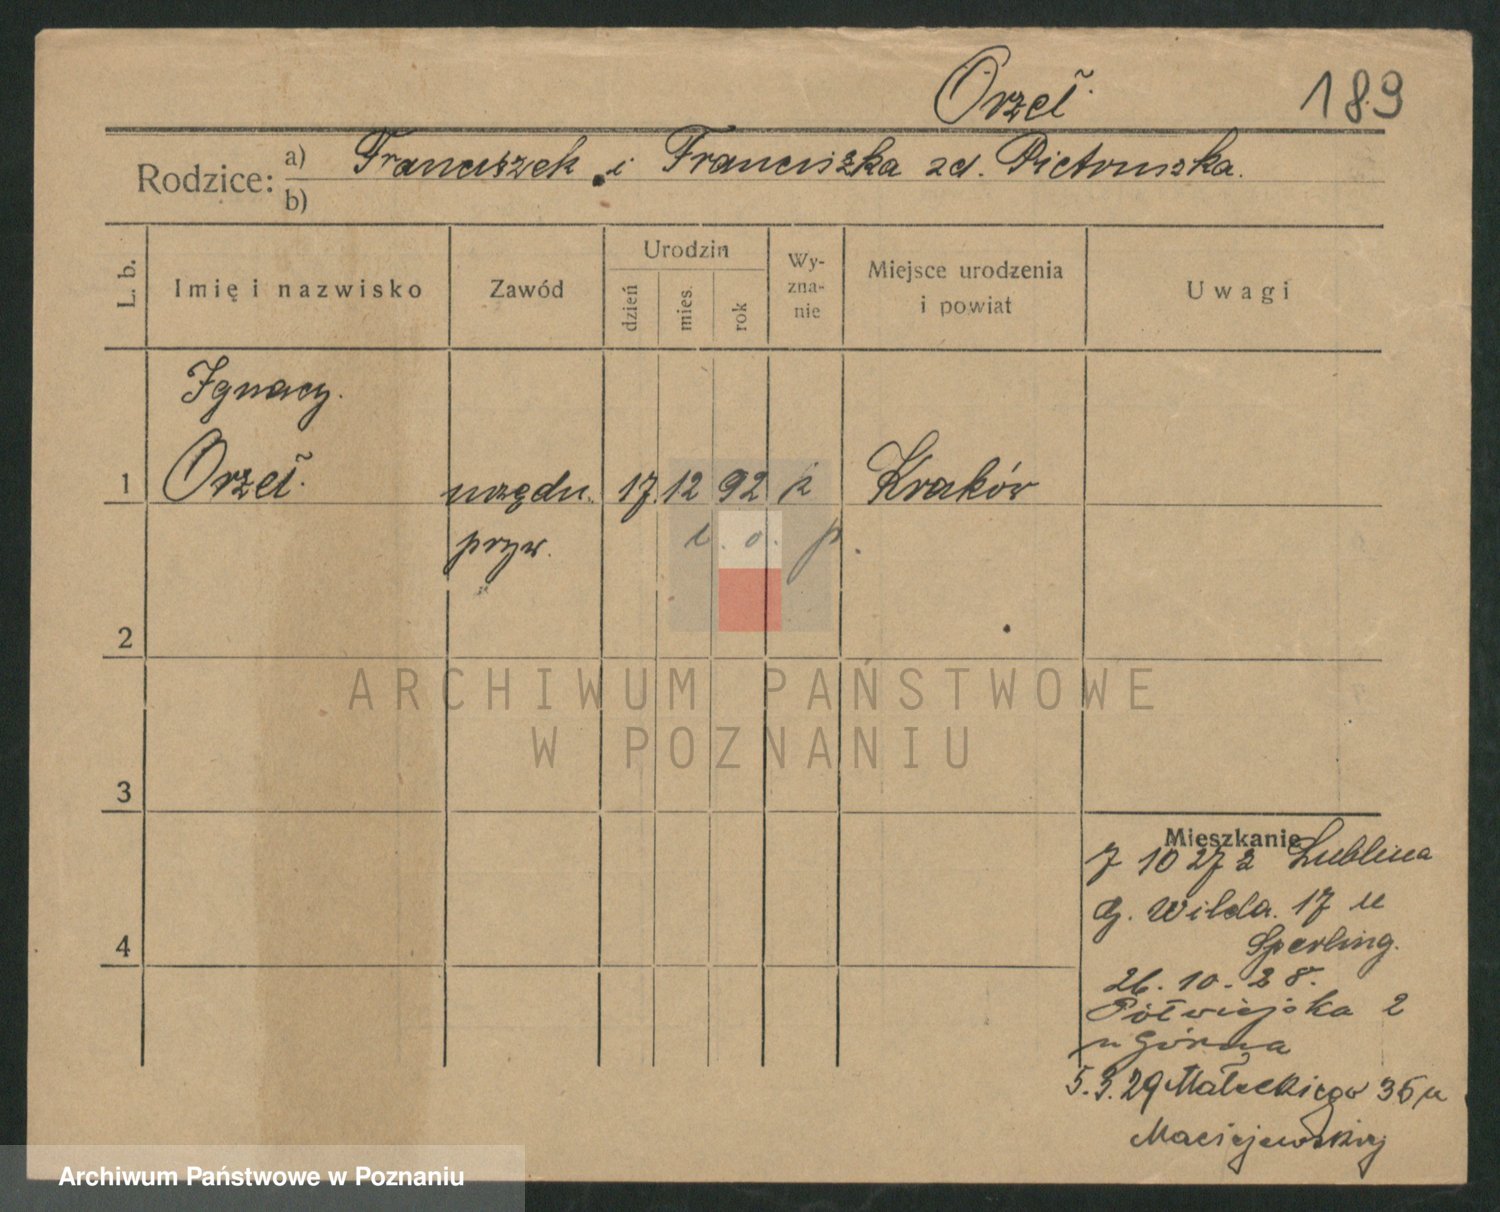 Orzeł
189
Rodzice: a) Franciszek i Franciszka zd.
b)
L. b.
Imię i nazwisko
Zawód
Urodzin
dzień
mies.
rok
Wy-
zna-
nie
Miejsce urodzenia
i powiat
Uwagi
Ignacy.
1 Orzeł urzędn. 17 12 92 k Kraków
pryw.
2
ARCHIWUM PAŃSTWOWE
W POZNANIU
3
Mieszkanie
7 10 27 z Lublina
G. Wilda. 17 u
Sperling.
26. 10. 28.
Półwiejska 2
u Górna
5.3.29 Małeckiego 36 u
Maciejewskiej
4
Archiwum Państwowe w Poznaniu